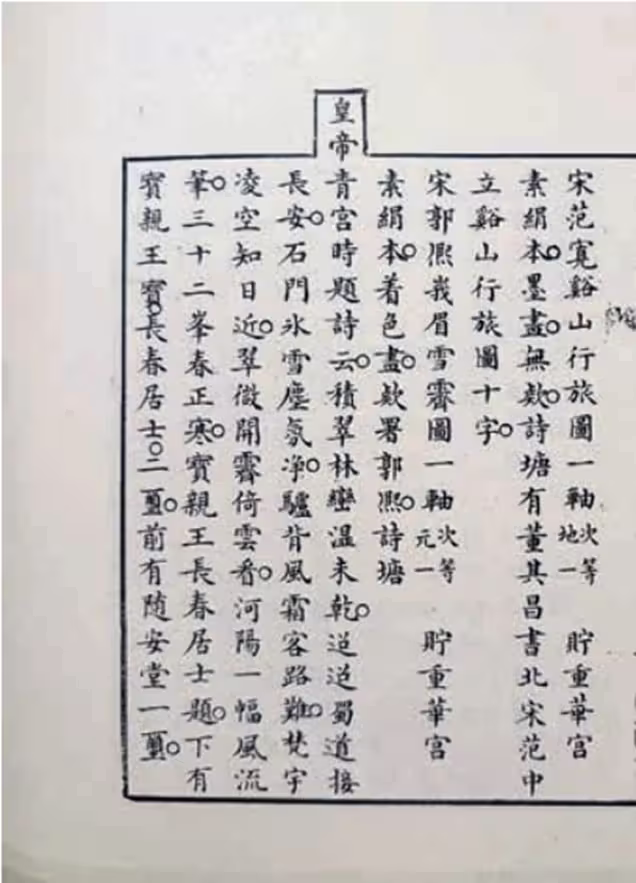 宋范寬谿山行旅圖一軸 次等地一 貯重華宮
素絹本。墨畫。無欵。詩塘有董其昌書北宋范中
立谿山行旅圖十字。
宋郭熈峩眉雪霽圖一軸 次等元一 貯重華宮
素絹本。着色畫。欵署郭熈。詩塘
皇帝青宮時題詩云。積翠林巒温未乾。迢迢蜀道接
長安。石門氷雪塵氛净。驢背風霜客路難。梵宇
凌空知日近。翠微開霽倚雲看。河陽一幅風流
筆。三十二峯春正寒。寶親王長春居士題。下有
寶親王寶。長春居士。二璽。前有随安堂一璽。